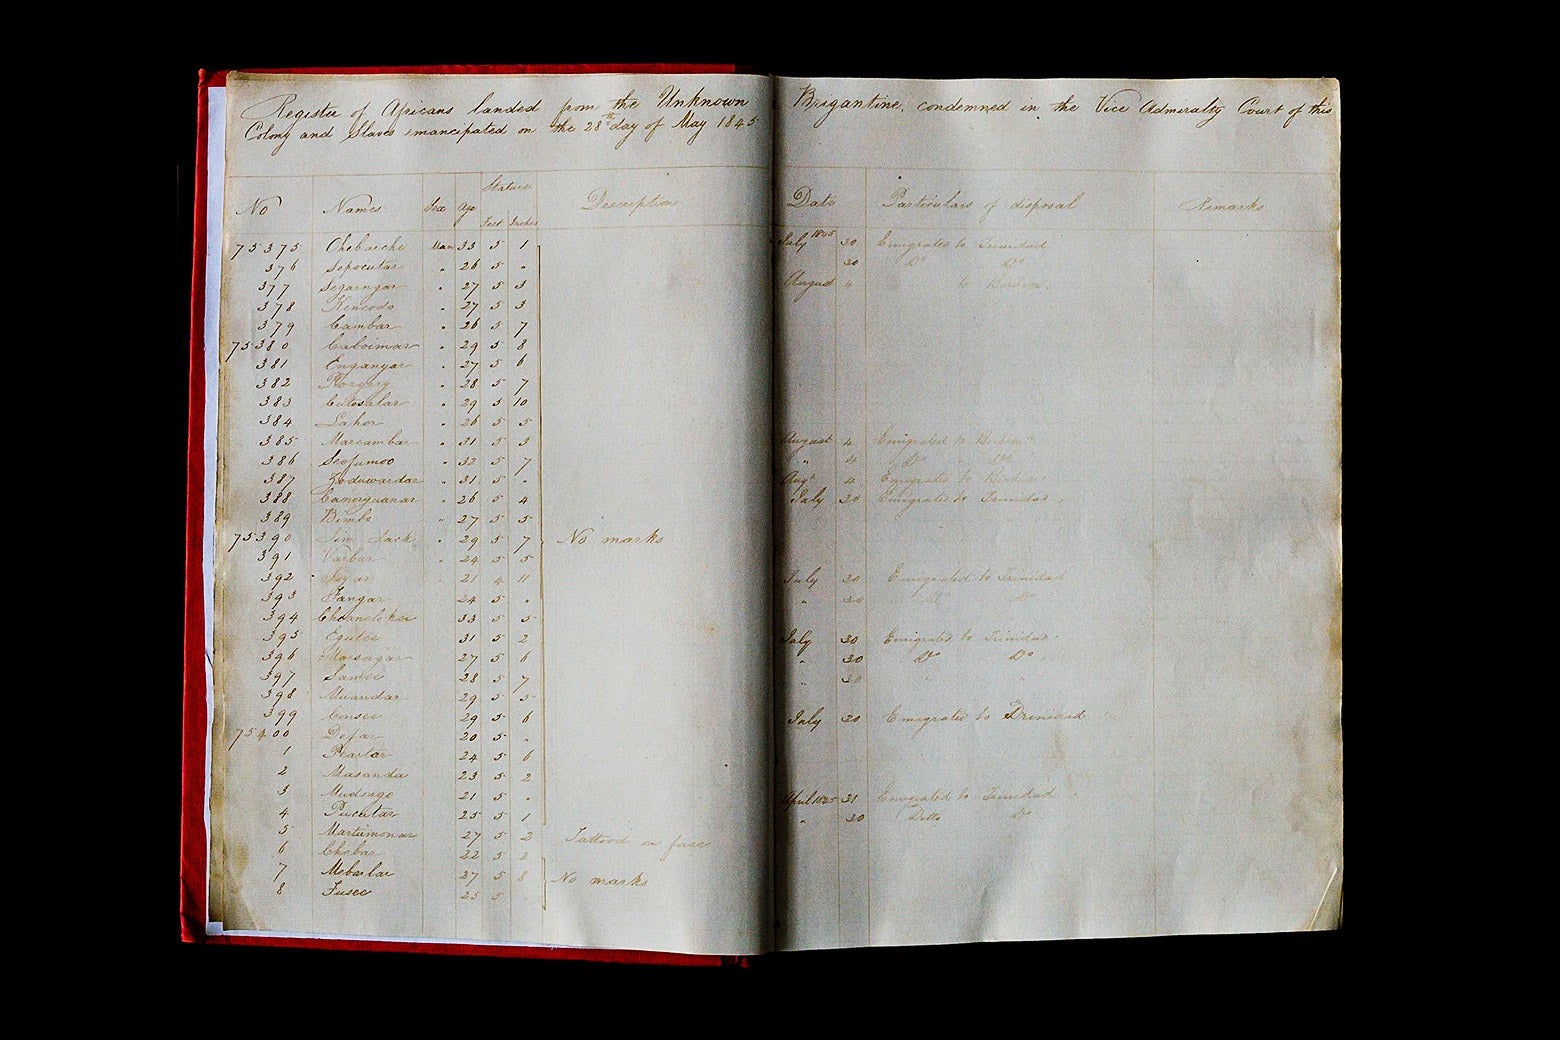 Register of Africans landed from the Unknown Brigantine, condemned in the Vice Admiralty Court of this
Colony and Slaves emancipated on the 28th day of May 1845
No Names Sex Age Stature Feet Inches Description Date Particulars of disposal Remarks
75375 Man 33 5 1 July 1845 30 Emigrated to Trinidad
376 Sepocutar " 26 5 " 30 Do Do
377 Segarngar " 27 5 3 August 4 " to
378 " 27 5 3
379 Cambar " 26 5 7
75380 Caboimar " 29 5 8
381 Enganyar " 27 5 6
382 " 28 5 7
383 " 29 5 10
384 Lahor " 26 5 5
385 Marcambar " 31 5 3 August 4 Emigrated to
386 Seofumoo " 32 5 7 " 4 Do Do
387 Zoduwardar " 31 5 " Augt 4 Emigrated to
388 Canorguanar " 26 5 4 July 30 Emigrated to Trinidad
389 Bimbo " 27 5 5
75390 Jim Jack " 29 5 7 No marks
391 Varbar " 24 5 5
392 21 4 11 July 30 Emigrated to Trinidad
393 Fangar 24 5 " " 30 Do Do
394 33 5 5
395 31 5 2 July 30 Emigrated to Trinidad
396 Marsagar 27 5 6 " 30 Do Do
397 Sambee 28 5 7 " 30 " "
398 Muandar 29 5 5
399 Consee 29 5 6 July 30 Emigrated to Trinidad
75400 Defar 20 5 "
1 24 5 6
2 Masanda 23 5 2
3 Mudongo 21 5 " April 1845 31 Emigrated to Trinidad
4 Pucutar 25 5 1 " 30 Ditto Do
5 Martumonar 27 5 2 Tattood on face
6 Chebar 22 5 2
7 Mebarlar 27 5 8 No marks
8 Fusee 25 5